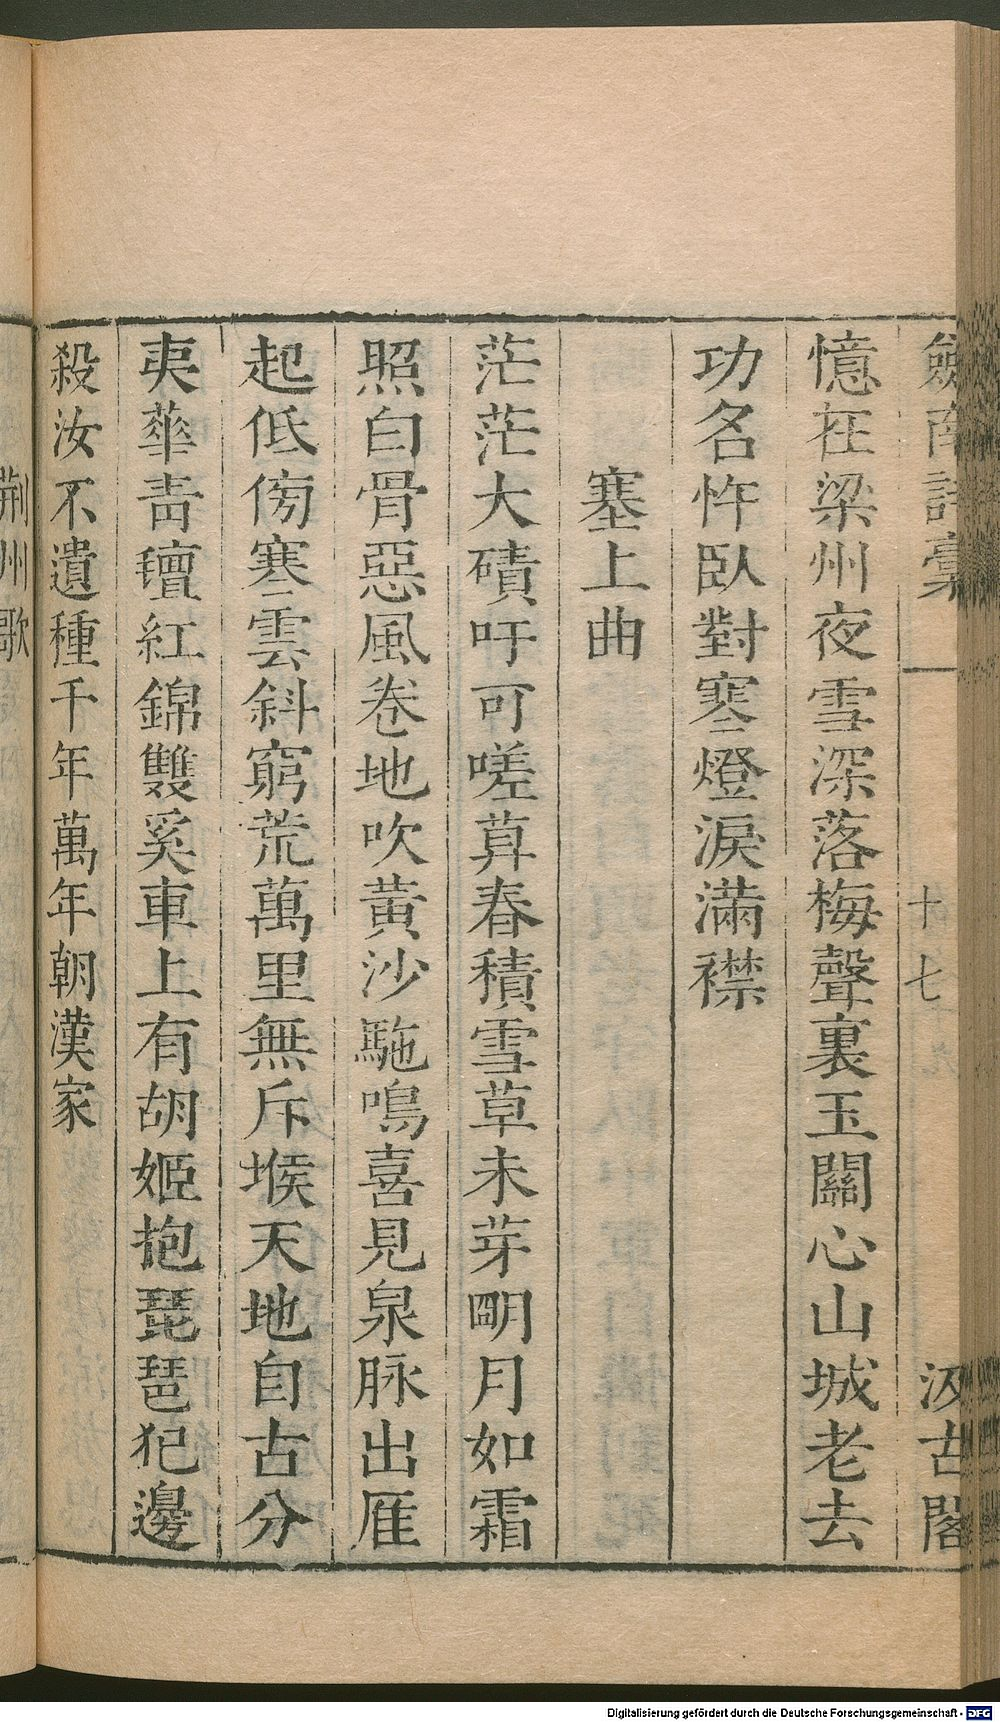 劍南詩稾
十七
汲古閣
憶在梁州夜雪深落梅聲裏玉關心山城老去
功名忤臥對寒燈淚滿襟
塞上曲
茫茫大磧吁可嗟莫春積雪草未芽明月如霜
照白骨惡風卷地吹黃沙駞鳴喜見泉脉出雁
起低傍寒雲斜窮荒萬里無斥堠天地自古分
夷華靑氊紅錦雙奚車上有胡姬抱琵琶犯邊
殺汝不遺種千年萬年朝漢家
荆州歌
Digitalisierung gefördert durch die Deutsche Forschungsgemeinschaft - DFG